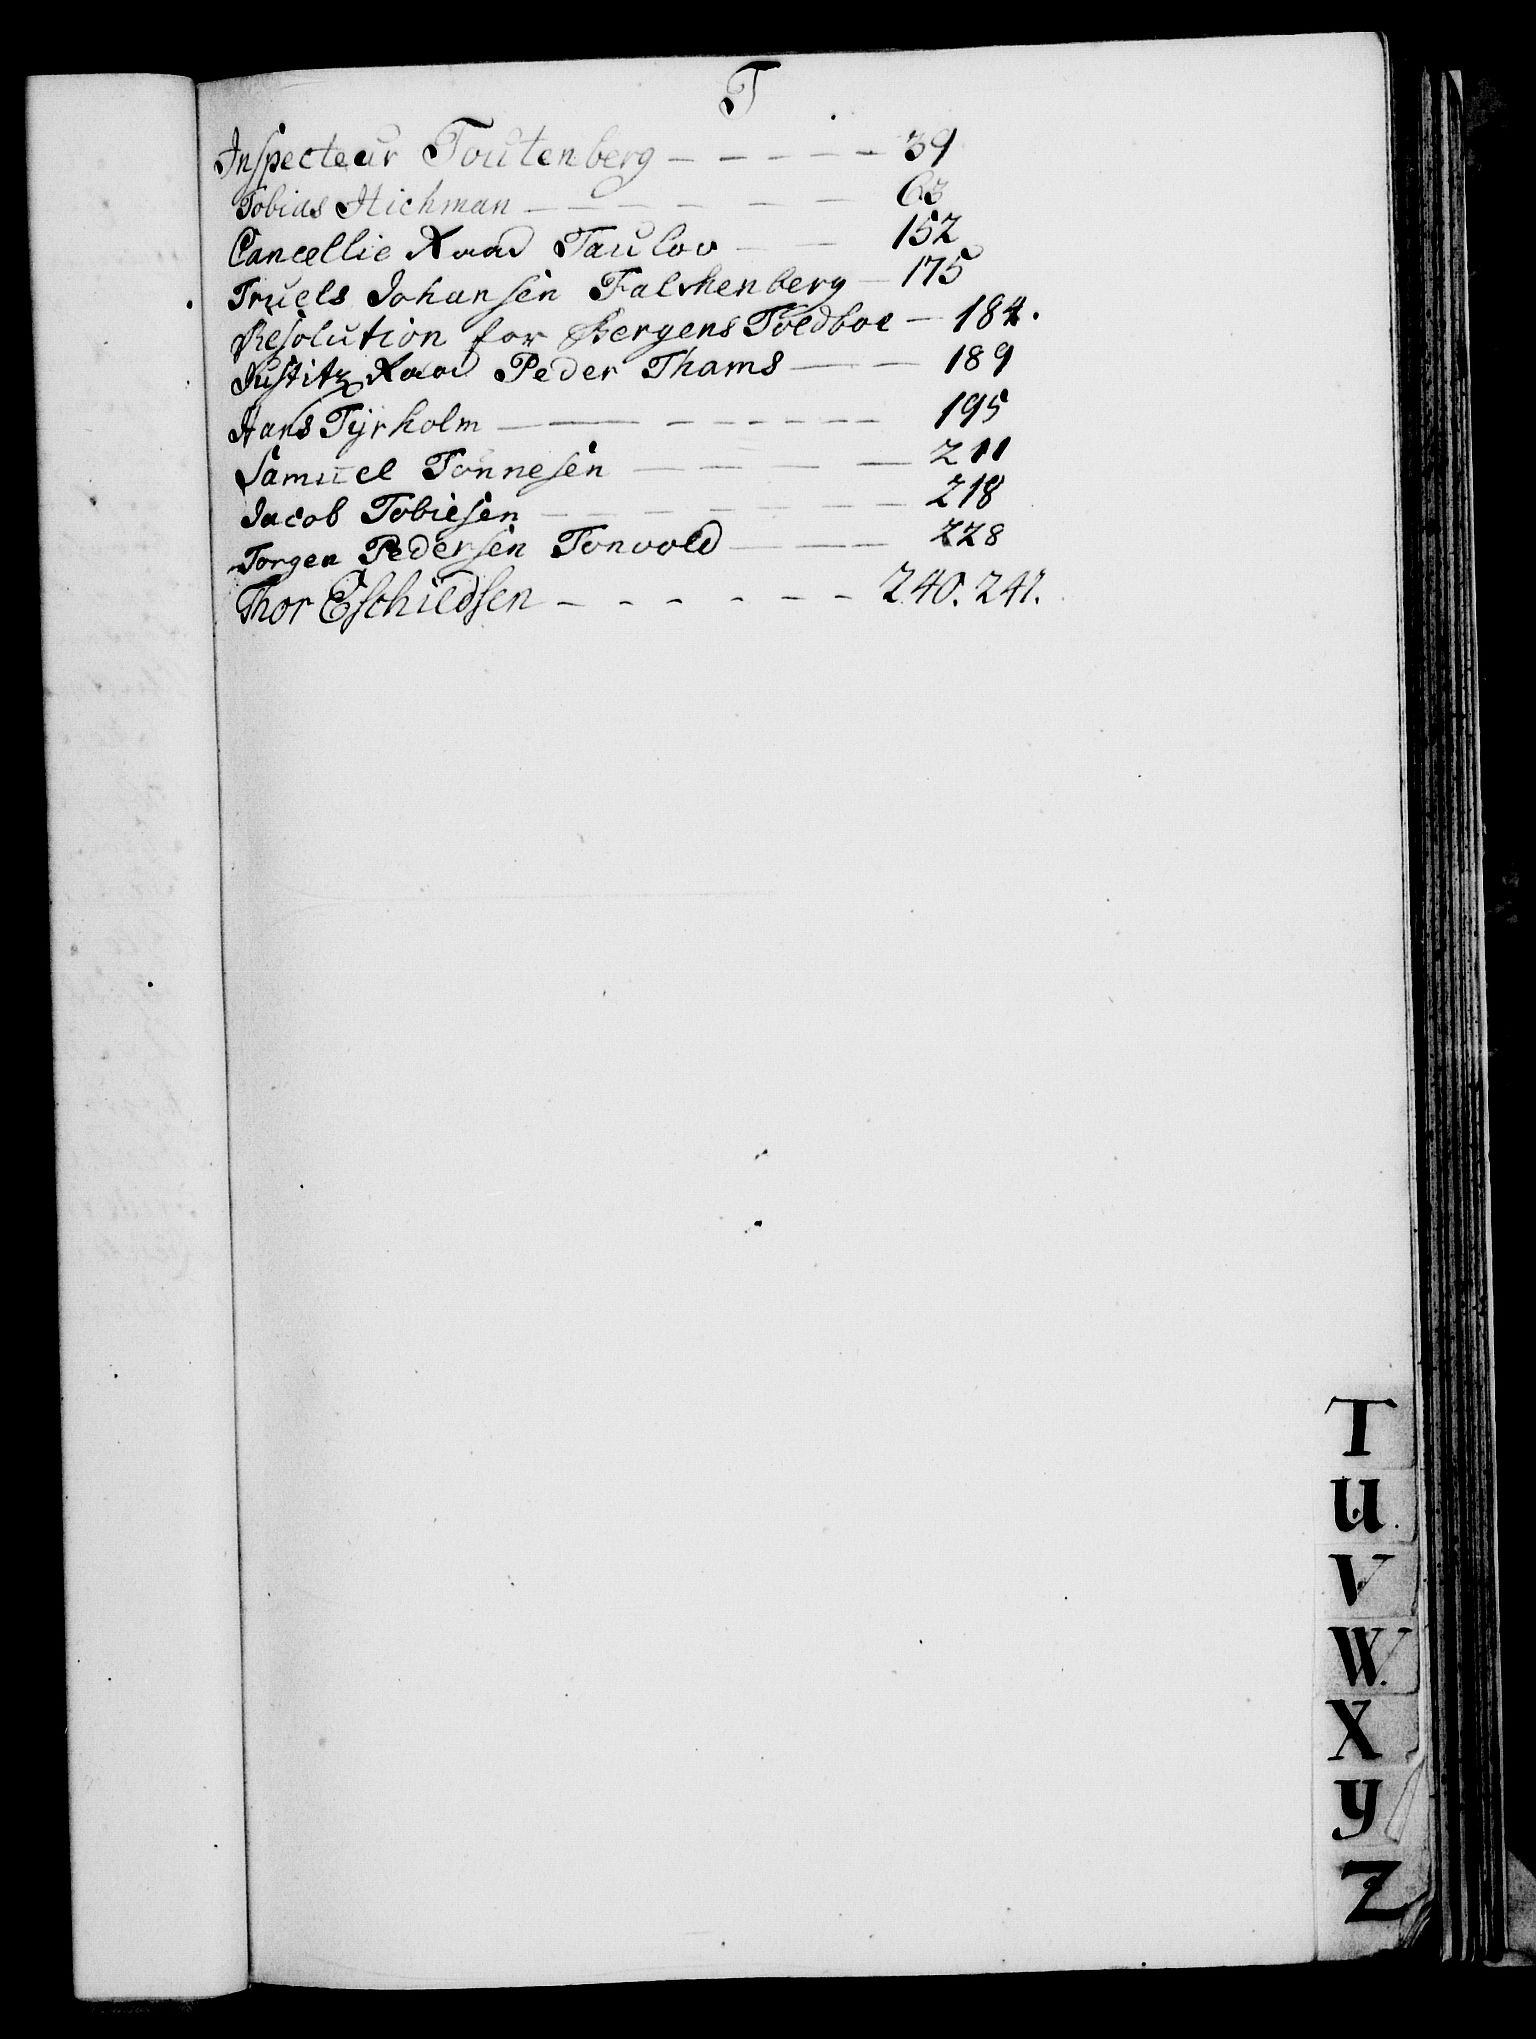 T
Inspecteur Toutenberg - - - - - 39
Tobias Hichman - - - - - - 63
Cancellie Raad Taulov - - 152
Truels Johansen Falchenberg - 175
Resolution for Bergens Toldboe - 184.
Justitz Raad Peder Thams - - - 189
Hans Tyrholm - - - - - - - - 195
Samuel Tønnesen - - - - - 211
Jacob Tobiesen - - - - - - - 218
Torgen Pedersen Tonvold - - - - 228
Thor Eschildsen - - - - - - 240. 241.
T
U
V
W
X
Y
Z